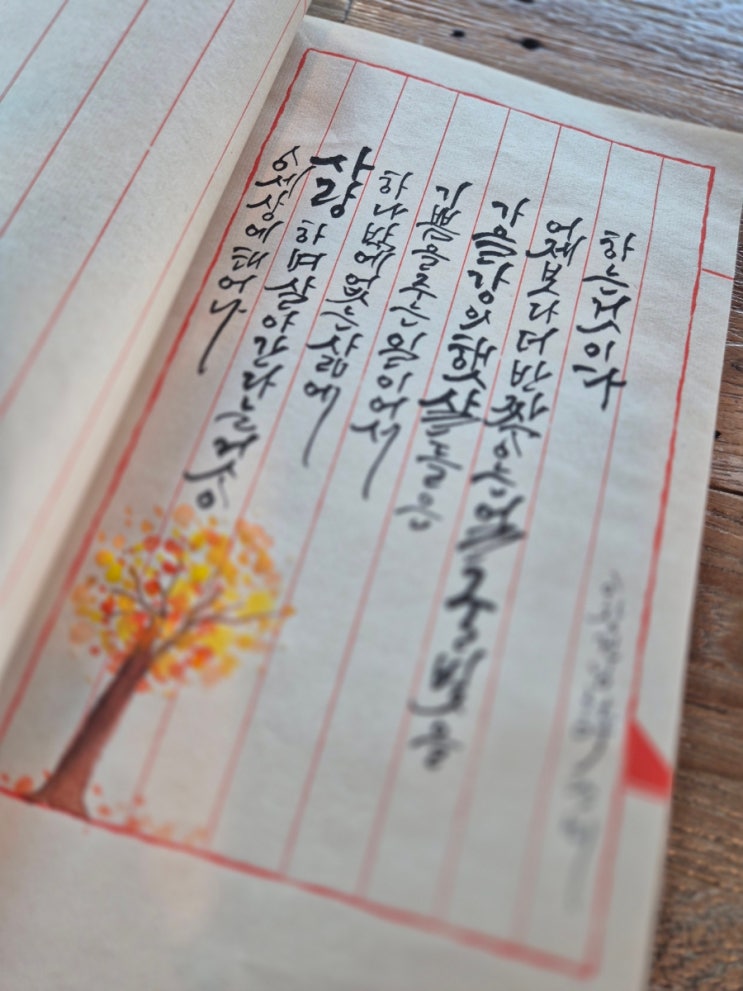 이 세상에 태어나
사랑하며 살아간다는 것은
하나밖에 없는 삶에
기쁨을 주는 일이어서
가을 강의 햇살들은
어제보다 더 반짝이는 얼굴빛을
하는 것이다